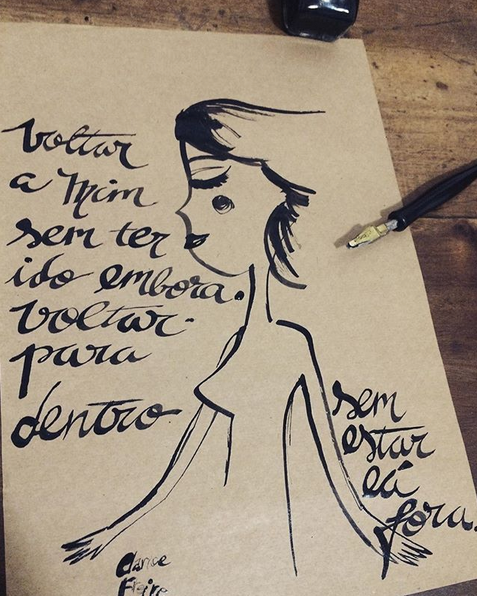 voltar
a mim
sem ter
ido embora.
voltar.
para
dentro
sem
estar
lá
fora.
Clarice
Freire